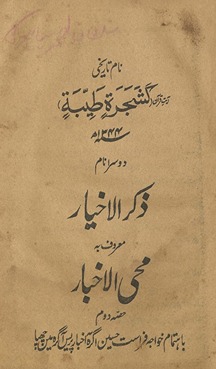 نام تاریخی
کشجرۃ طیبۃ
۱۳۴۴ھ
دوسرا نام
ذکر الاخیار
معروف بہ
محی الاخبار
حصہ دوم
باہتمام خواجہ فراست حسین آگرہ اخبار پریس آگرہ میں چھپا